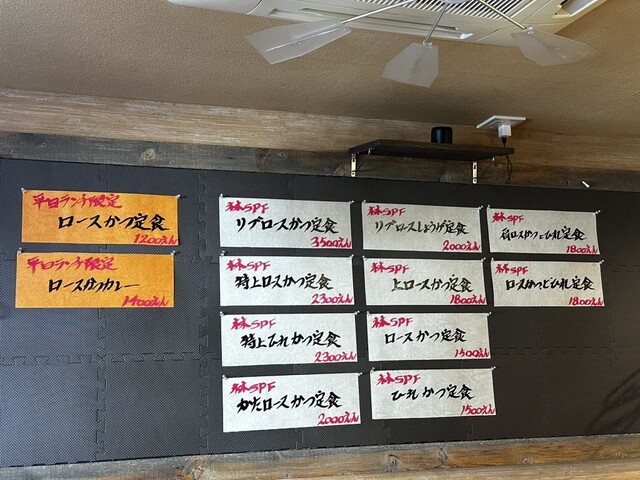 平日ランチ限定
ロースかつ定食
1200えん
平日ランチ限定
ロースカツカレー
1400えん
林SPF
リブロースかつ定食
3500えん
林SPF
特上ロースかつ定食
2300えん
林SPF
特上ひれかつ定食
2300えん
林SPF
かたロースかつ定食
2000えん
林SPF
リブロースしょうが定食
2000えん
林SPF
上ロースかつ定食
1800えん
林SPF
ロースかつ定食
1500えん
林SPF
ひれかつ定食
1500えん
林SPF
肩ロースかつとひれ定食
1800えん
林SPF
ロースかつとひれ定食
1800えん